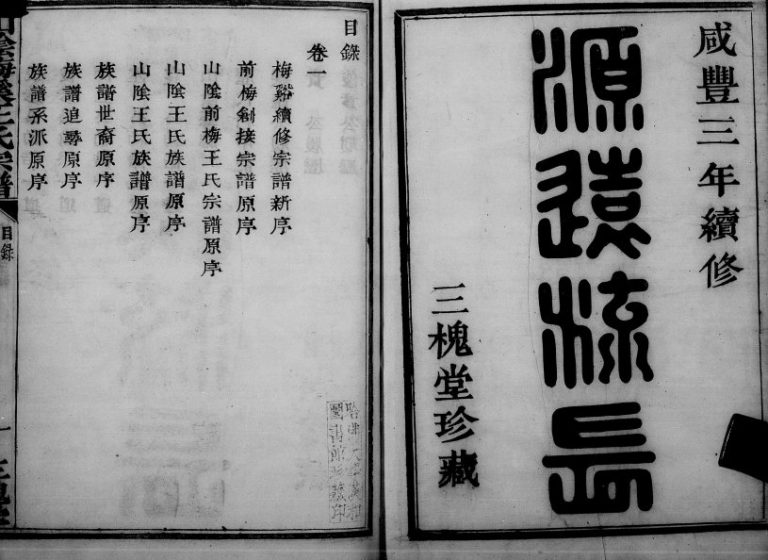 咸豐三年續修
源遠流長
三槐堂珍藏
目錄
卷一
梅谿續修宗譜新序
前梅剏接宗譜原序
山陰前梅王氏宗譜原序
山陰王氏族譜原序
山陰王氏族譜原序
族譜世裔原序
族譜追尋原序
族譜系派原序
目錄